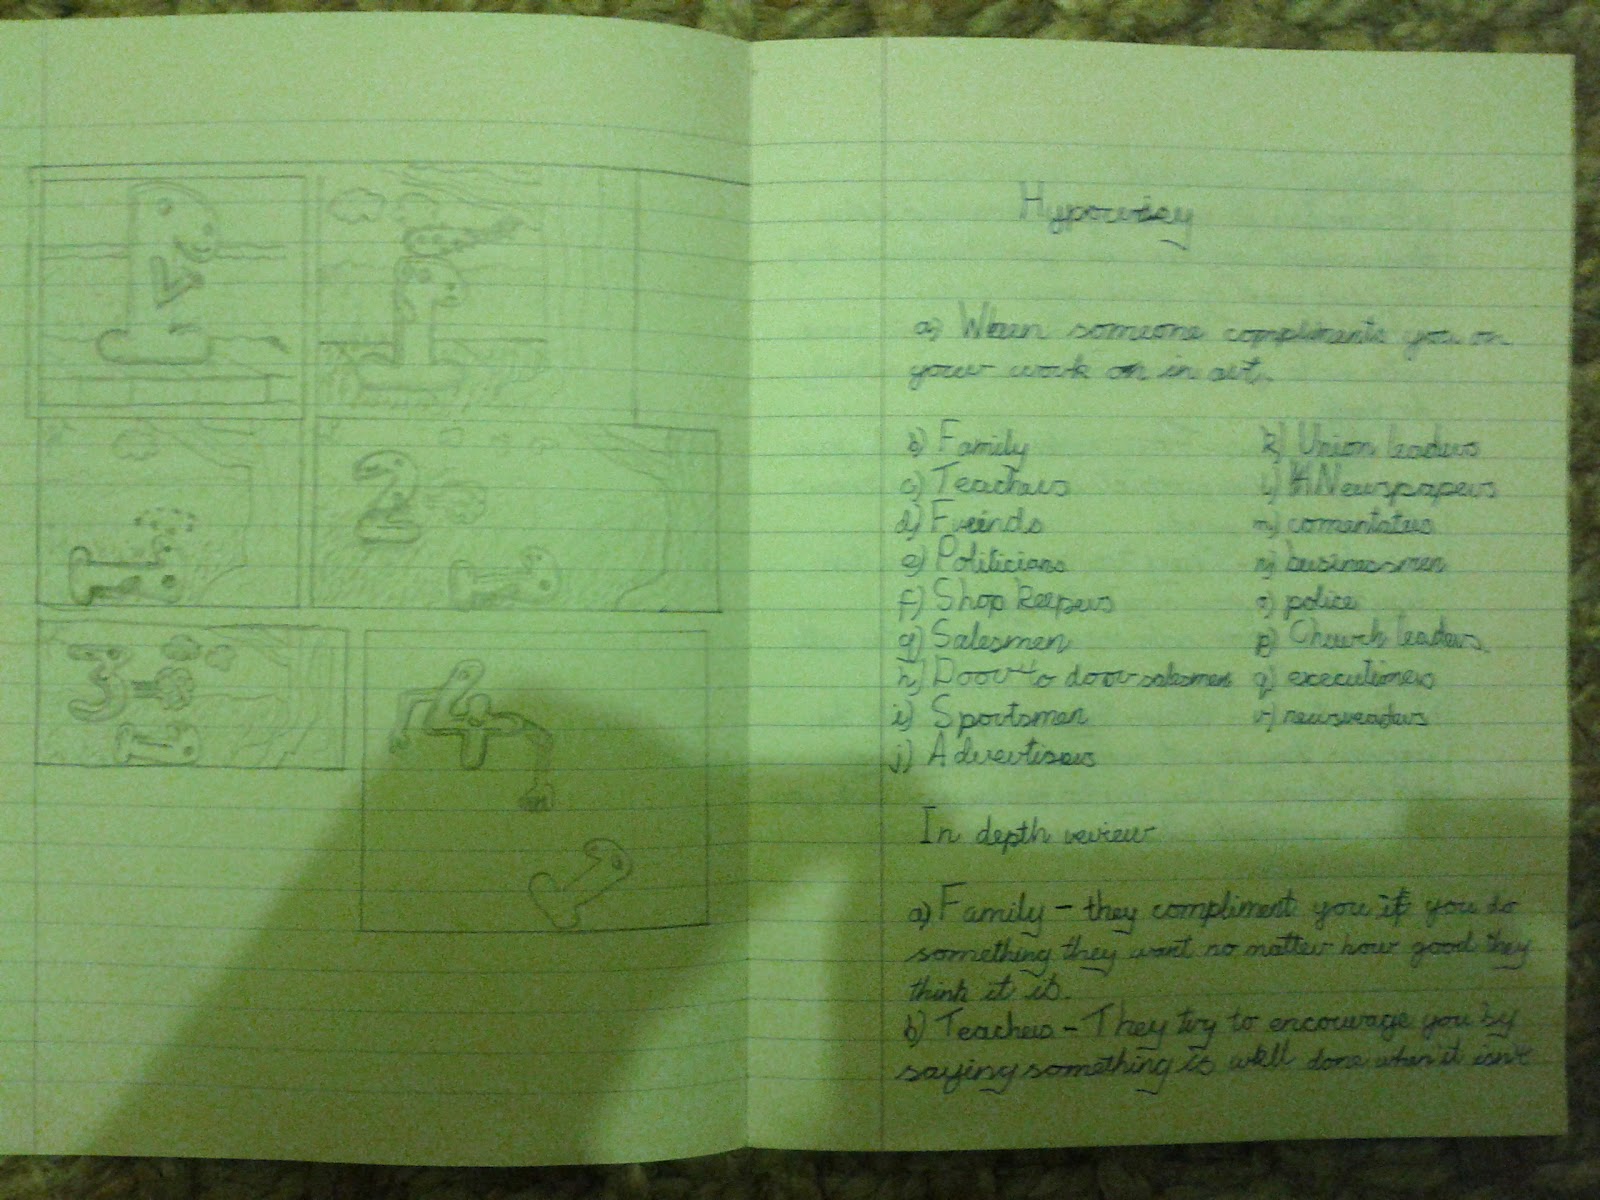 Hypocrisy
a) When someone compliments you on
your work on in art.
b) Family
c) Teachers
d) Freinds
e) Politicians
f) Shop keepers
g) Salesmen
h) Door to door salesmen
i) Sportsmen
j) Advertisers
k) Union leaders
l) Newspapers
m) comentaters
n) businessmen
o) police
p) Church leaders.
q) executioners
r) newsreaders
In depth review
a) Family - they compliment you if you do
something they want no matter how good they
think it it.
b) Teachers - They try to encourage you by
saying something is well done when it isn't